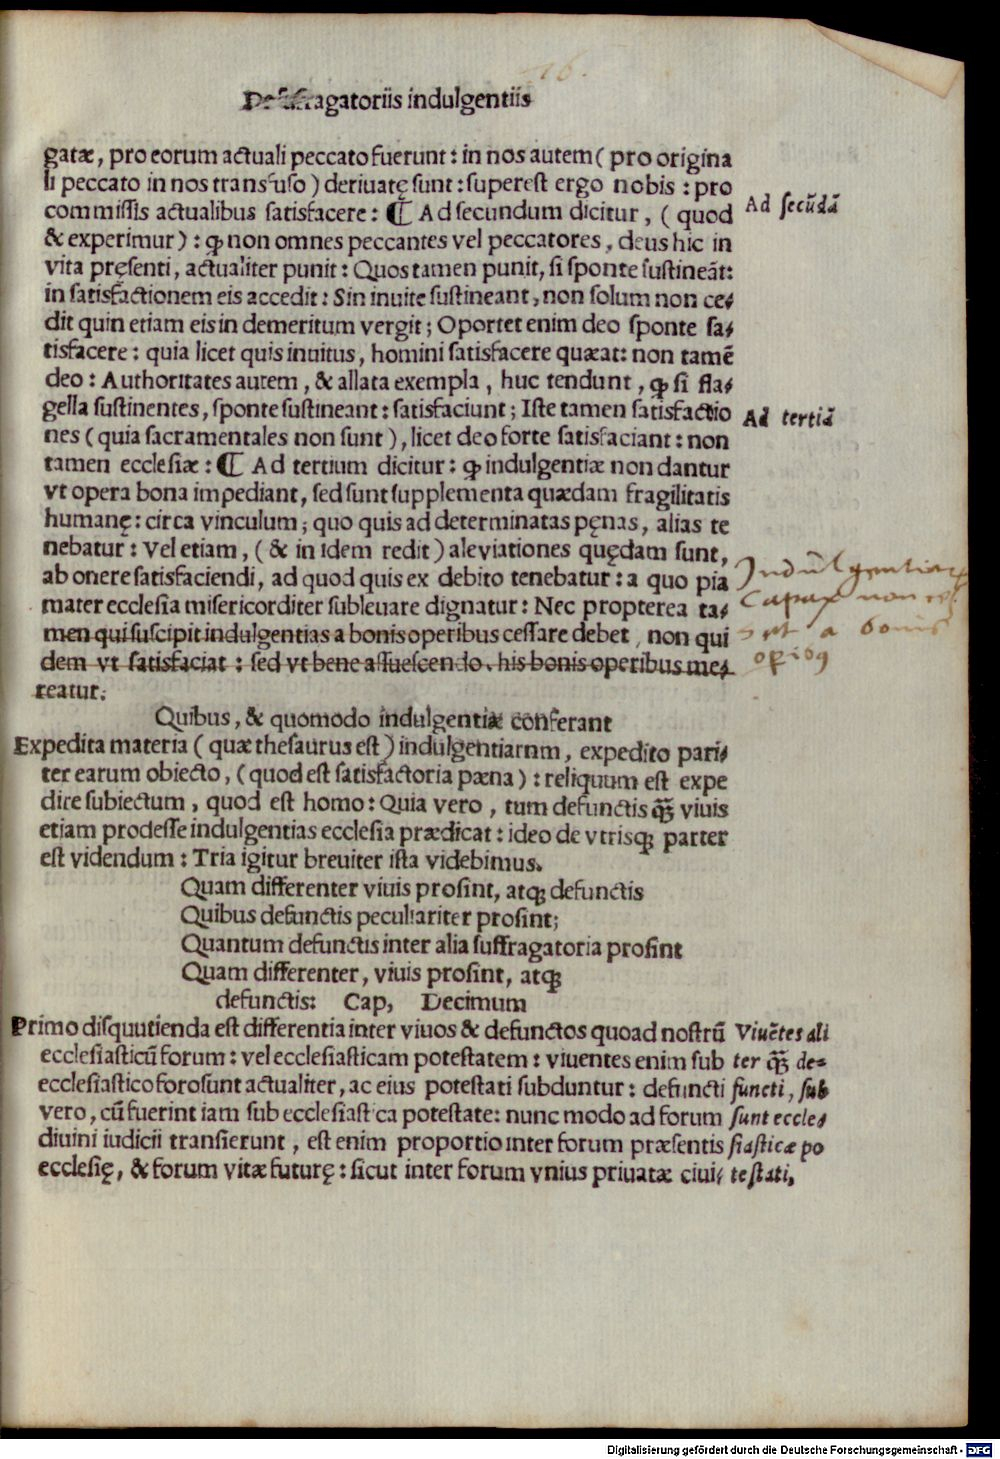 De suffragatoriis indulgentiis
gatæ, pro eorum actuali peccato fuerunt : in nos autem ( pro origina
li peccato in nos transfuso ) deriuatę sunt : superest ergo nobis : pro
commissis actualibus satisfacere : ¶ Ad secundum dicitur , ( quod
& experimur ) : ꝙ non omnes peccantes vel peccatores , deus hic in
vita pręsenti , actualiter punit : Quos tamen punit, si sponte sustineāt:
in satisfactionem eis accedit : Sin inuite sustineant, non solum non ce⸗
dit quin etiam eis in demeritum vergit ; Oportet enim deo sponte sa⸗
tisfacere : quia licet quis inuitus , homini satisfacere quæat: non tamē
deo : Authoritates autem , & allata exempla , huc tendunt , ꝙ si fla⸗
gella sustinentes , sponte sustineant : satisfaciunt ; Iste tamen satisfactio
nes ( quia sacramentales non sunt ) , licet deo forte satisfaciant : non
tamen ecclesiæ : ¶ Ad tertium dicitur : ꝙ indulgentiæ non dantur
vt opera bona impediant, sed sunt supplementa quædam fragilitatis
humanę : circa vinculum ; quo quis ad determinatas pęnas , alias te
nebatur : Vel etiam , ( & in idem redit ) aleviationes quędam sunt,
ab onere satisfaciendi , ad quod quis ex debito tenebatur : a quo pia
mater ecclesia misericorditer subleuare dignatur : Nec propterea ta⸗
men qui suscipit indulgentias a bonis operibus cessare debet , non qui
dem vt satisfaciat : sed vt bene assuescendo, his bonis operibus me⸗
reatur.
Ad secūdā
Ad tertiā
Indulgentiar
Capax non
a bonis
opibꝰ
Quibus, & quomodo indulgentiæ conferant
Expedita materia ( quæ thesaurus est ) indulgentiarnm , expedito pari⸗
ter earum obiecto, ( quod est satisfactoria pæna ) : reliquum est expe
dire subiectum , quod est homo : Quia vero , tum defunctis ꝙ̄ viuis
etiam prodesse indulgentias ecclesia prædicat : ideo de vtrisqꝫ parter
est videndum : Tria igitur breuiter ista videbimus.
Quam differenter viuis prosint, atqꝫ defunctis
Quibus defunctis peculiariter prosint;
Quantum defunctis inter alia suffragatoria prosint
Quam differenter, viuis prosint, atqꝫ
defunctis: Cap, Decimum
Primo disquutienda est differentia inter viuos & defunctos quoad nostrū
ecclesiasticū forum : vel ecclesiasticam potestatem : viuentes enim sub
ecclesiastico foro sunt actualiter, ac eius potestati subduntur : defuncti
vero , cū fuerint iam sub ecclesiastica potestate: nunc modo ad forum
diuini iudicii transierunt , est enim proportio inter forum præsentis
ecclesię, & forum vitæ futurę : sicut inter forum vnius priuatæ ciui⸗
Viuētes ali
ter ꝙ̄ de=
functi, sub
sunt eccle⸗
siasticæ po
testati,
Digitalisierung gefördert durch die Deutsche Forschungsgemeinschaft - DFG